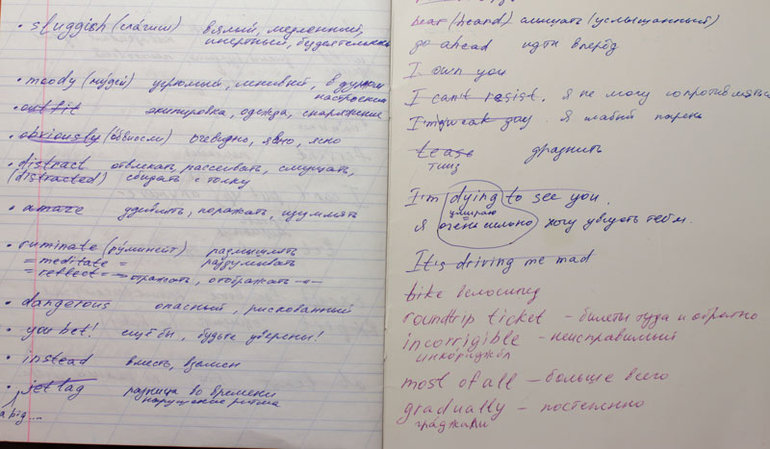 • sluggish (слагиш) вялый, медленный,
инертный,
• moody (муди) угрюмый, в дурном
настроении
• outfit экипировка, одежда, снаряжение
• obviously (обвиосли) очевидно, явно, ясно
• distract отвлекать, рассеивать, смущать,
(distracted) сбивать с толку
• amaze удивить, поражать, изумлять
• ruminate (руминейт) размышлять
= meditate = раздумывать
= reflect = отражать, отображать
• dangerous опасный, рискованный
• you bet! ещё бы, будьте уверены!
• instead вместо, взамен
• jet lag разница во времени
нарушение ритма
a big ...
hear (heard) слышать (услышанный)
go ahead идти вперёд
I own you
I can't resist. я не могу сопротивляться
I'm weak guy я слабый парень
tease дразнить
тииз
I'm dying to see you.
умираю
я очень сильно хочу увидеть тебя.
It's driving me mad
bike велосипед
roundtrip ticket – билеты туда и обратно
incorrigible – неисправимый
инкориджбл
most of all – больше всего
gradually – постепенно
граджуали